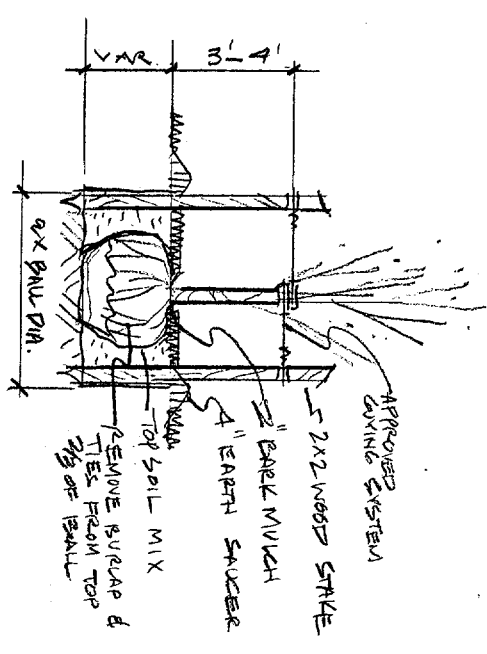 VAR.
3'-4'
2X BALL DIA.
APPROVED
GUYING SYSTEM
2X2 WOOD STAKE
2" BARK MULCH
4" EARTH SAUCER
TOPSOIL MIX
REMOVE BURLAP &
TIES FROM TOP
OF BALL